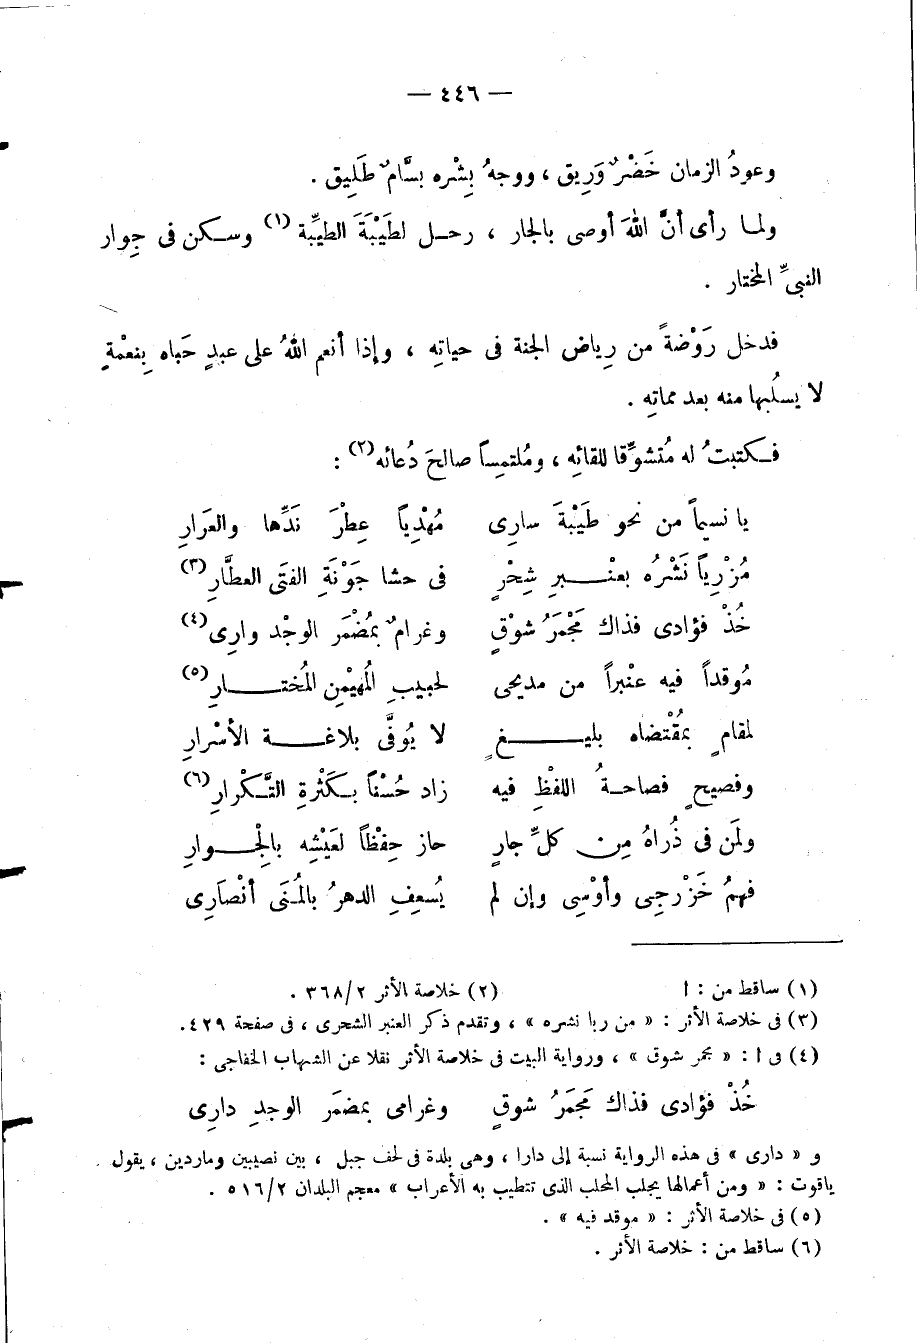 — ٤٤٦ —
وعودُ الزمان خَضْرٌ وَرِيق ، ووجهُ بِشْره بسَّامٌ طَلِيق .
ولما رأى أنَّ اللهَ أوصى بالجار ، رحل لطَيْبَةَ الطيِّبة (١) وسكن فى جِوار
النبىِّ المختار .
فدخل رَوْضةً من رِياض الجنة فى حياتِه ، وإذا أنعم اللهُ على عبدٍ حَباه بِنعْمةٍ
لا يسلُبها منه بعد مماتِه .
فكتبتُ له مُتشوِّقا للقائِه ، ومُلتمِساً صالحَ دُعائه (٢) :
يا نسيماً من نحو طَيْبةَ سارِى مُهْدِياً عِطْرَ نَدِّها والعَرارِ
مُزْرِياً نَشْرُه بعنْبرِ شِحْرٍ فى حشا جَوْنَةِ الفتَى العطَّارِ (٣)
خُذْ فؤادى فذاك مَجْمَرُ شوْقٍ وغرامٌ بمُضْمَر الوجْد وارِى (٤)
مُوقداً فيه عنْبراً من مديحى لحبيبِ المُهيْمنِ المُختارِ (٥)
لمقامٍ بمُقْتضاه بليغٍ لا يُوفَّى بلاغة الأسْرارِ
وفصيحٍ فصاحةُ اللفظِ فيه زاد حُسْناً بكَثْرةِ التَّكْرارِ (٦)
ولمَن فى ذُراهُ مِن كلِّ جارٍ حاز حِفْظاً لعَيْشِه بالْجوارِ
فهمُ خَزْرجِى وأوْسِى وإن لم يُسعِفِ الدهرُ بالمُنَى أنْصارِى
(١) ساقط من : ا (٢) خلاصة الأثر ٣٦٨/٢ .
(٣) فى خلاصة الأثر : « من ربا نشره » ، وتقدم ذكر العنبر الشحرى ، فى صفحة ٤٢٩.
(٤) فى ا : « مجمر شوق » ، ورواية البيت فى خلاصة الأثر نقلا عن الشهاب الخفاجى :
خُذْ فؤادى فذاك مَجمَرُ شوقٍ وغرامى بمضمَر الوجدِ دارِى
و « دارى » فى هذه الرواية نسبة إلى دارا ، وهى بلدة فى لحف جبل ، بين نصيبين وماردين ، يقول
ياقوت : « ومن أعمالها يجلب المحلب الذى تتطيب به الأعراب » معجم البلدان ٥١٦/٢ .
(٥) فى خلاصة الأثر : « موقد فيه » .
(٦) ساقط من : خلاصة الأثر .